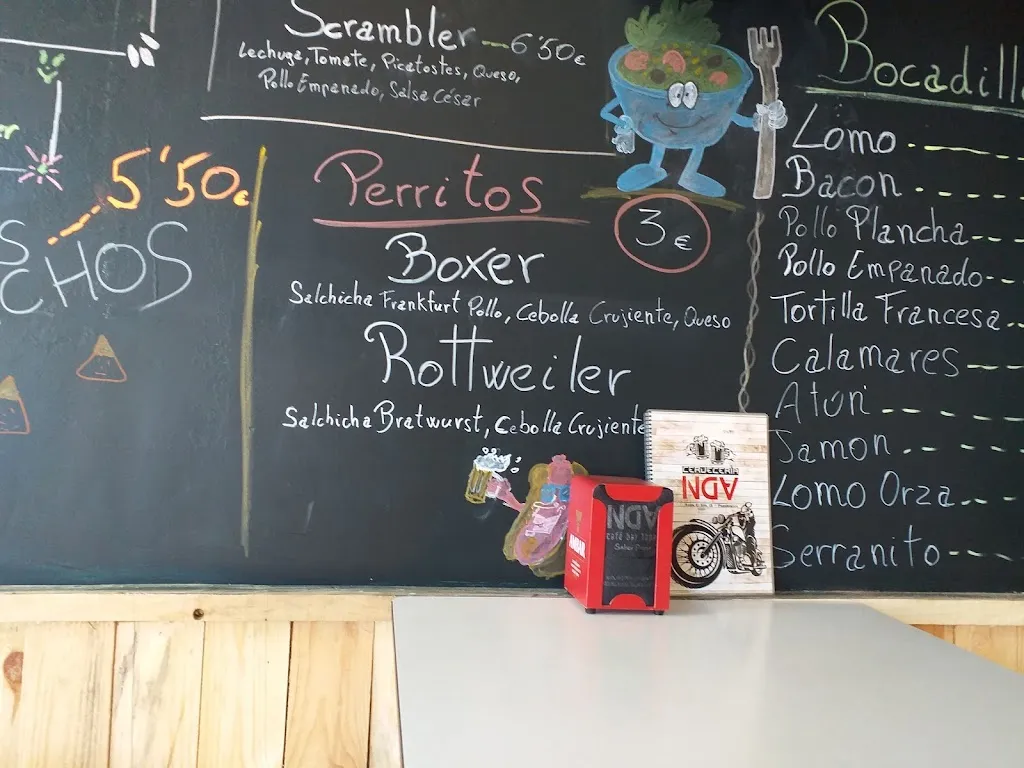 Scrambler — 6'50€
Lechuga, Tomate, Picatostes, Queso,
Pollo Empanado, Salsa César
5'50€
CHOS
Perritos
3€
Boxer
Salchicha Frankfurt Pollo, Cebolla Crujiente, Queso
Rottweiler
Salchicha Bratwurst, Cebolla Crujiente
Bocadill
Lomo
Bacon
Pollo Plancha
Pollo Empanado
Tortilla Francesa
Calamares
Atún
Jamon
Lomo Orza
Serranito
CERVECERÍA
NDV
NDV
CAFÉ BAR
AMBAR